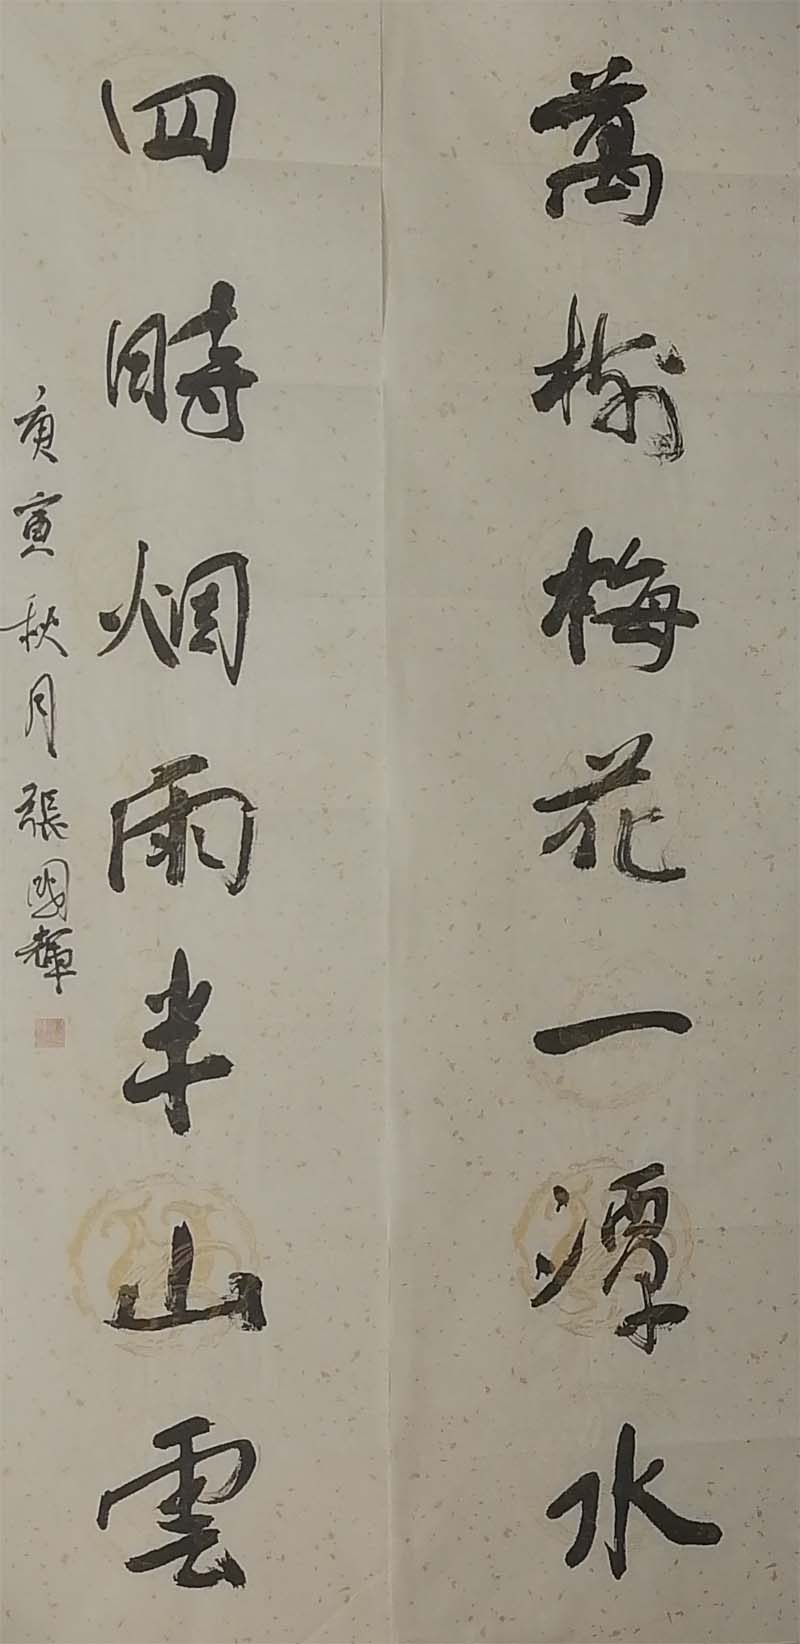 萬樹梅花一潭水
四時烟雨半山雲
庚寅秋月張國輝